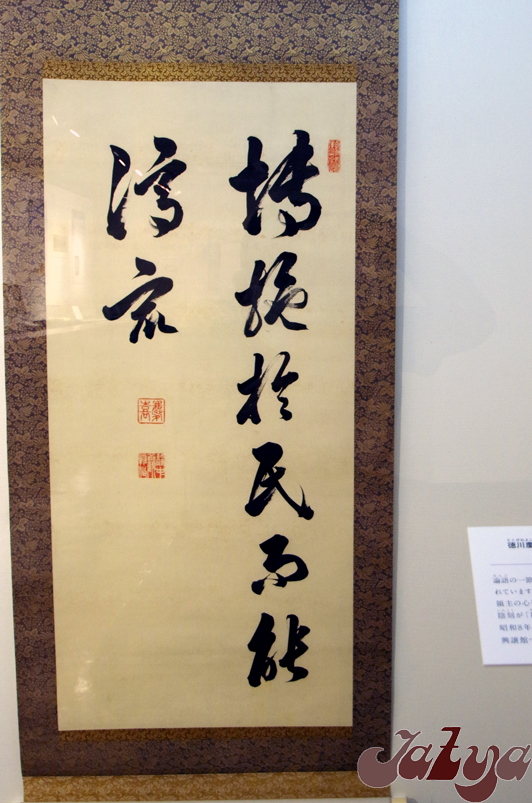 博施於民而能
濟衆
徳川慶
論語の一節
れています
領主の心
昭和8年
興譲館
Jatya